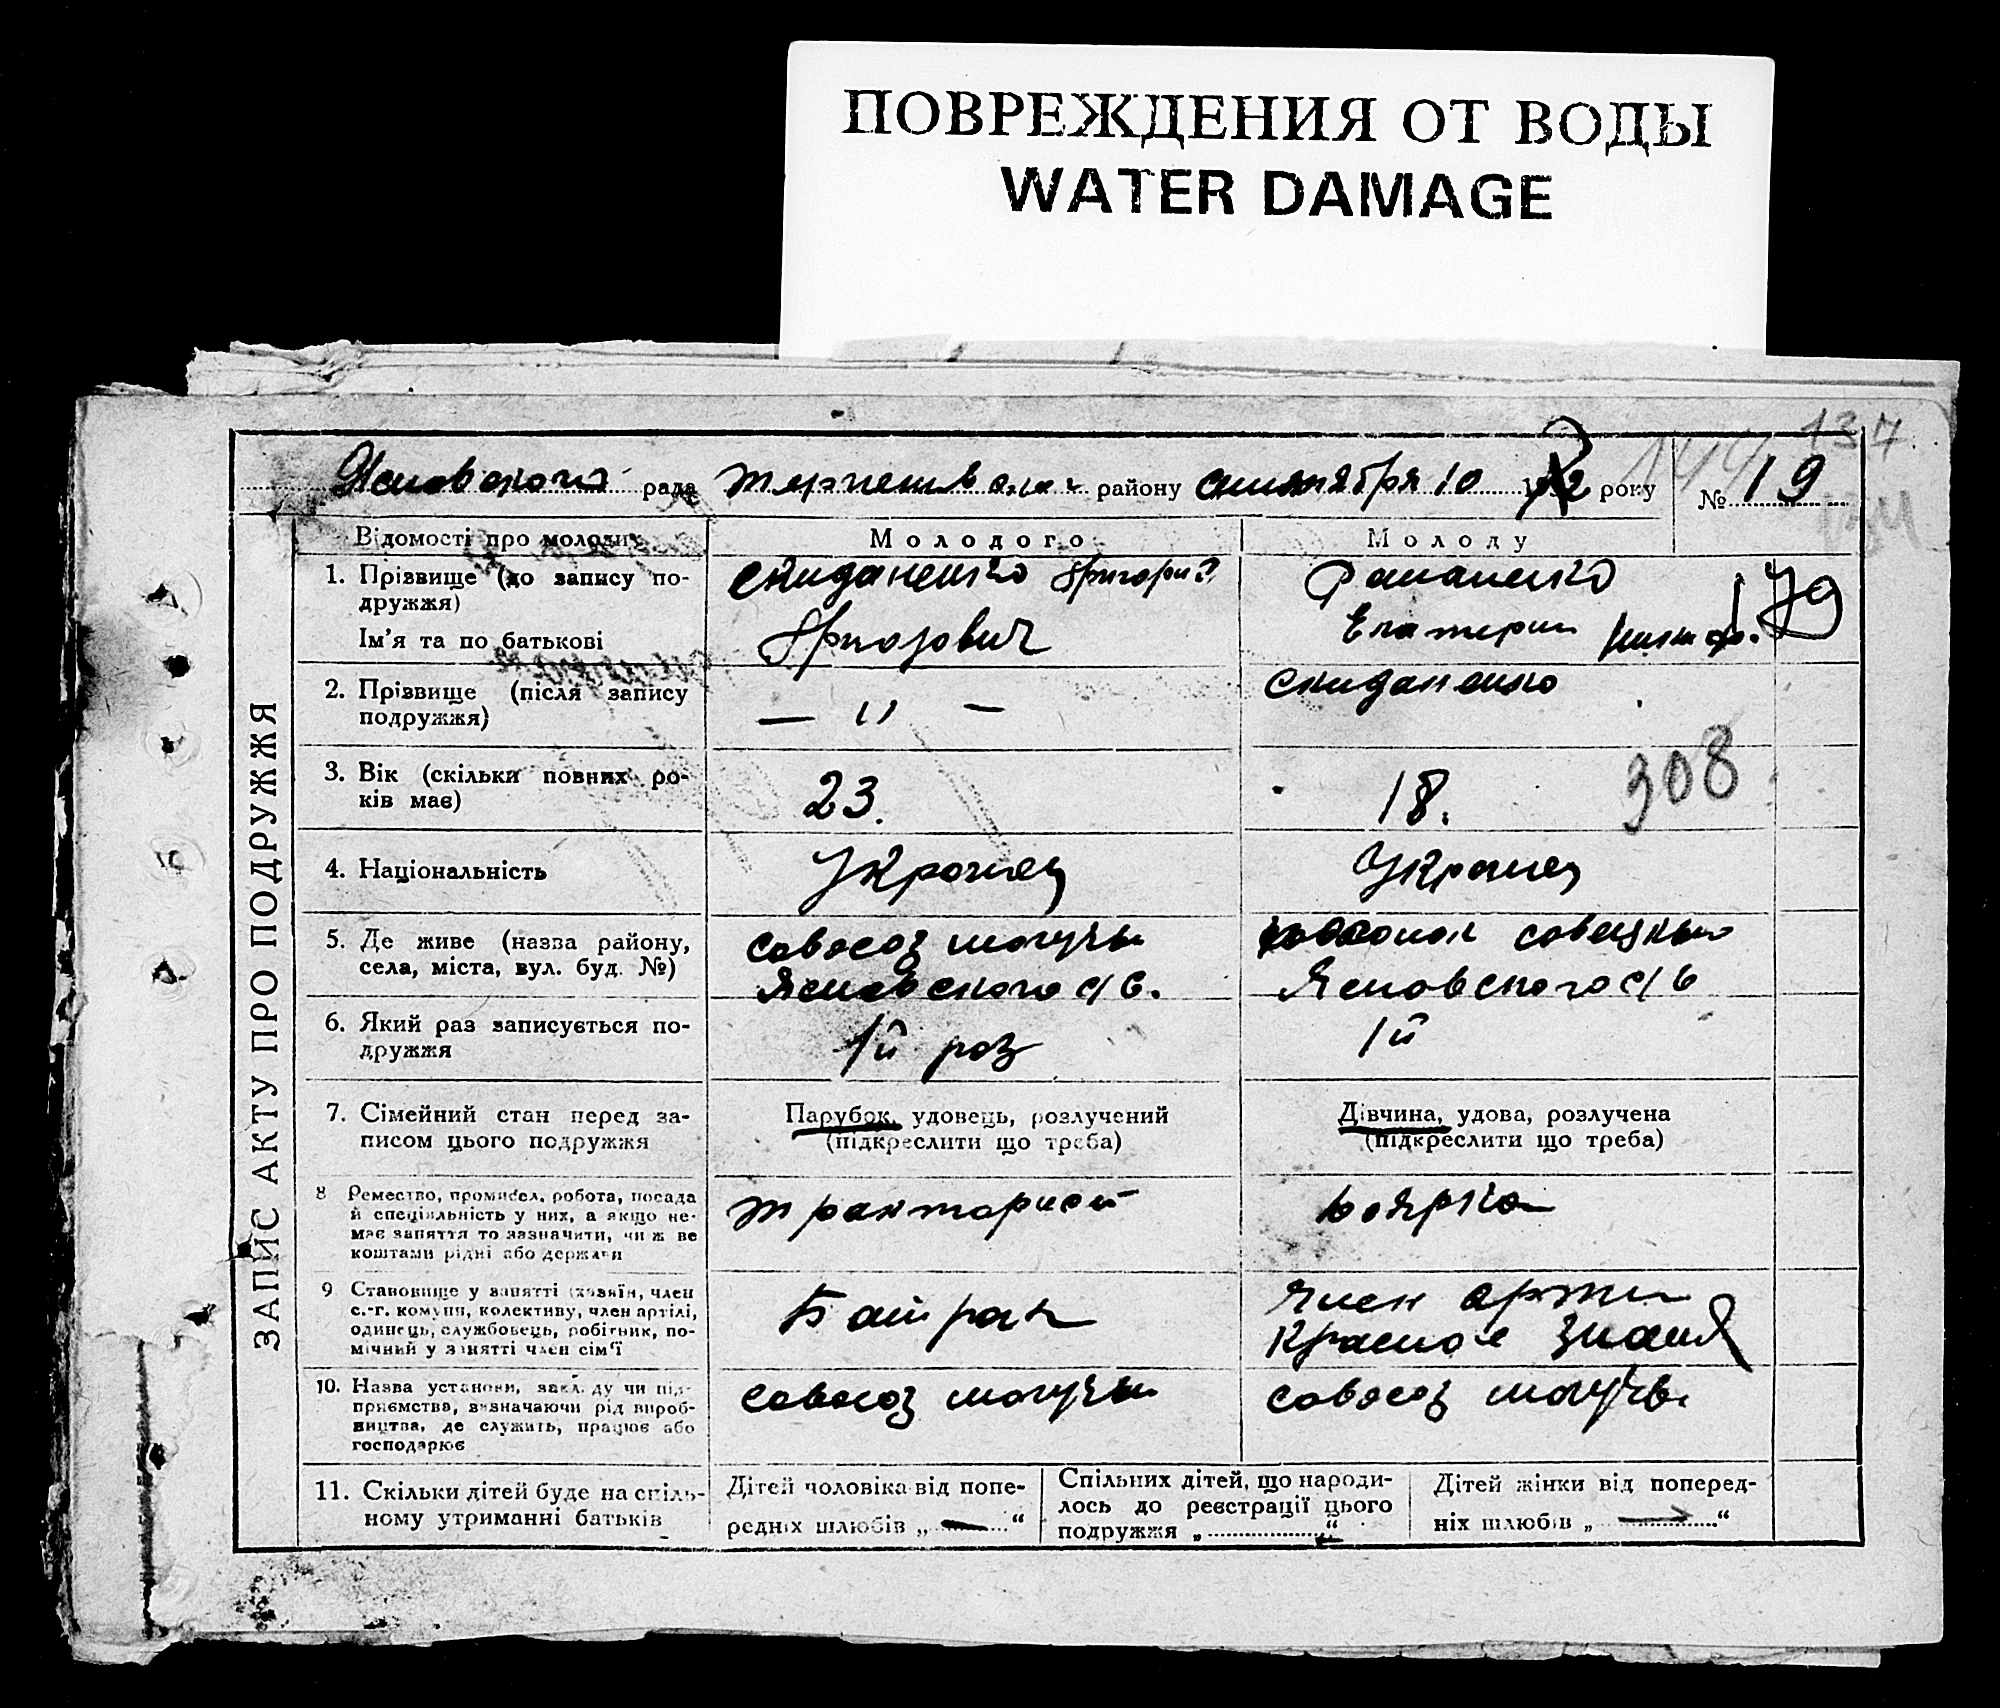 ПОВРЕЖДЕНИЯ ОТ ВОДЫ
WATER DAMAGE
137
144
рада району 10 року № 19
ЗАПИС АКТУ ПРО ПОДРУЖЖЯ
Відомості про молодих Молодого Молоду
1. Прізвище (до запису по-
дружжя)
Ім'я та по батькові
Скиданенко Григорий
Григорович
Романенко
Екатерин
79
2. Прізвище (після запису
подружжя)
— 〃 —
Скиданенко
3. Вік (скільки повних ро-
ків має)
23.
18.
308
4. Національність
Украинец
Украинец
5. Де живе (назва району,
села, міста, вул. буд. №)
совхоз
Ясновского с/с.
Ясновского с/с
6. Який раз записується по-
дружжя
1й раз
1й
7. Сімейний стан перед за-
писом цього подружжя
Парубок, удовець, розлучений
(підкреслити що треба)
Дівчина, удова, розлучена
(підкреслити що треба)
8 Ремество, промисел, робота, посада
й спеціяльність у них, а якщо не-
має заняття то зазначити, чиїж ве
коштами рідні або держави
тракторист
доярка
9 Становище у занятті (хазяїн, член
с.-г. комуни, колективу, член артілі,
одинець, службовець, робітник, по-
мічний у занятті член сім'ї
Батрак
член арти
Красное знамя
10. Назва установи, закладу чи під-
приємства, визначаючи рід вироб-
ництва, де служить, працює або
господарює
совхоз
совхоз
11. Скільки дітей буде на спіль-
ному утриманні батьків
Дітей чоловіка від попе-
редніх шлюбів „ — “
Спільних дітей, що народи-
лось до реєстрації цього
подружжя „ “
Дітей жінки від поперед-
ніх шлюбів „ — “